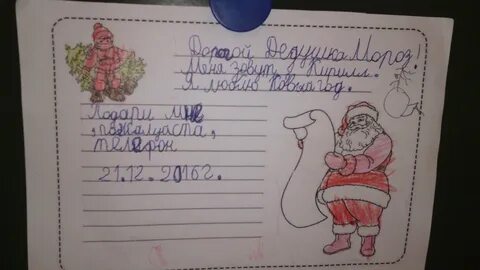 Дорогой Дедушка Мороз!
Меня зовут Кирилл.
Я люблю Новый год.
Подари мне
, пожалуйста,
телефон
21.12.2016г.